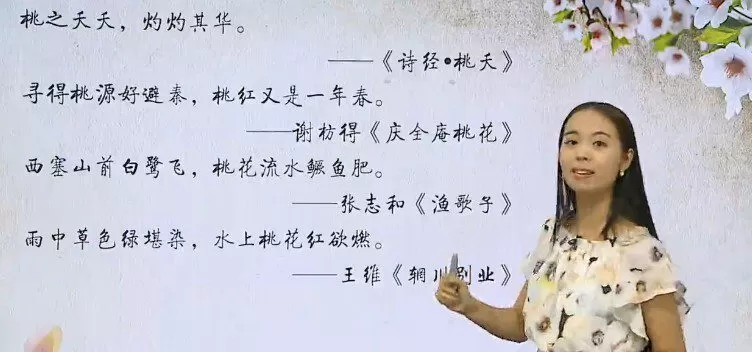 桃之夭夭，灼灼其华。
——《诗经•桃夭》
寻得桃源好避秦，桃红又是一年春。
——谢枋得《庆全庵桃花》
西塞山前白鹭飞，桃花流水鳜鱼肥。
——张志和《渔歌子》
雨中草色绿堪染，水上桃花红欲燃。
——王维《辋川别业》